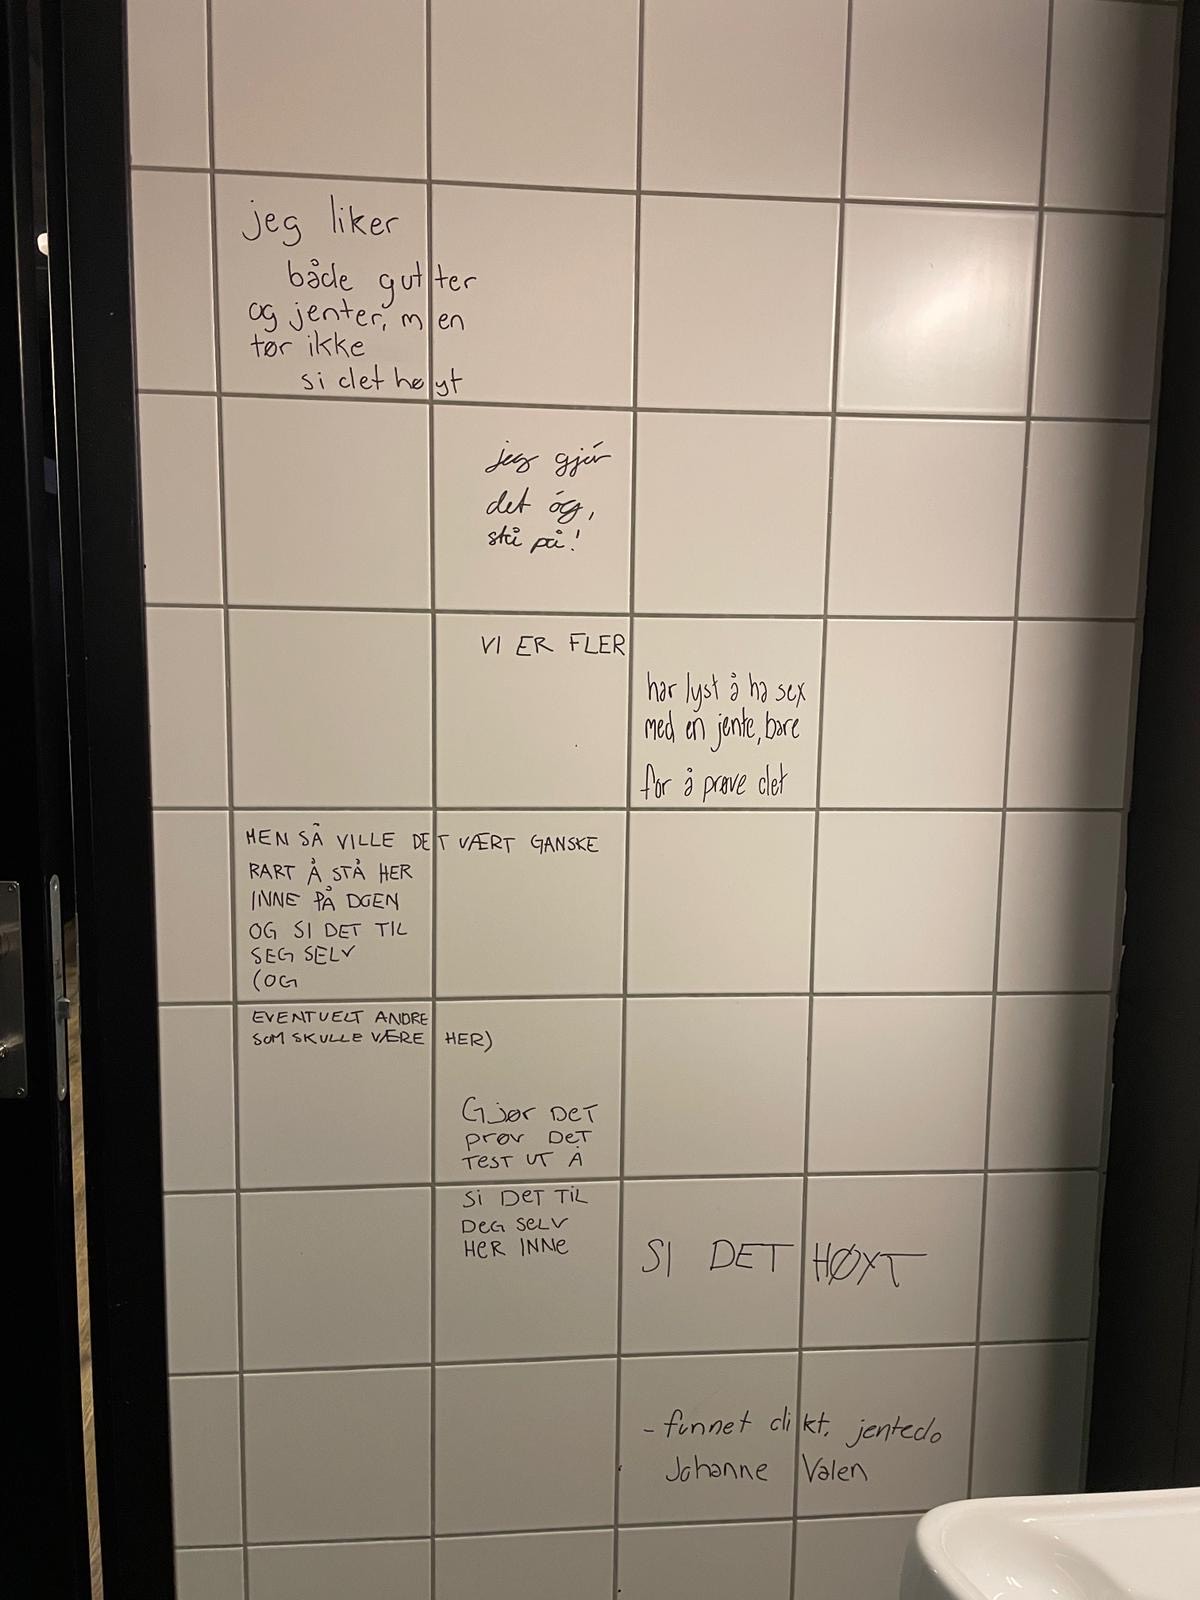 jeg liker
både gutter
og jenter, men
tør ikke
si det høyt
jeg gjør
det óg,
stå på!
VI ER FLER
har lyst å ha sex
med en jente, bare
for å prøve det
MEN SÅ VILLE DET VÆRT GANSKE
RART Å STÅ HER
INNE PÅ DOEN
OG SI DET TIL
SEG SELV
(OG
EVENTUELT ANDRE
SOM SKULLE VÆRE HER)
Gjør DeT
prøv DeT
TesT UT Å
Si DeT TiL
DeG SeLV
HeR INNe
SI DET HØYT
- funnet dikt, jentedo
Johanne Valen